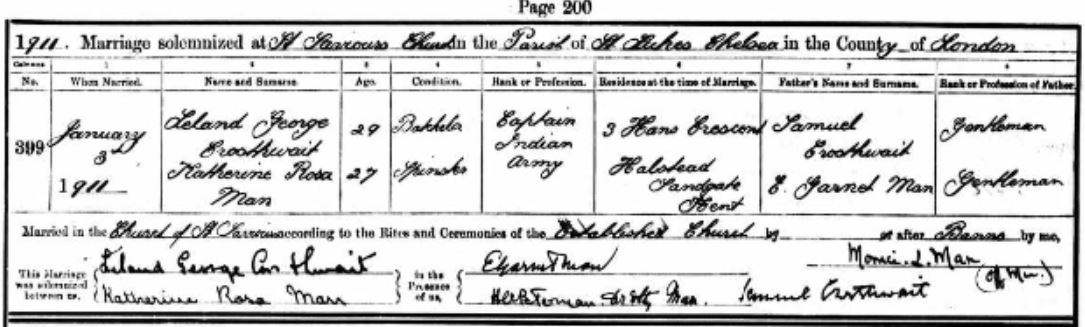 Page 200
1911. Marriage solemnized at St Saviours Church in the Parish of St Lukes Chelsea in the County of London
Columns 1 2 3 4 5 6 7 8
No. When Married. Name and Surname. Age. Condition. Rank or Profession. Residence at the time of Marriage. Father's Name and Surname. Rank or Profession of Father.
399 January 3rd 1911 Leland George Crosthwait 29 Bachelor Captain Indian Army 3 Hans Crescent Samuel Crosthwait Gentleman
Katherine Rosa Man 27 Spinster Halstead Sandgate Kent E. Garnet Man Gentleman
Married in the Church of St Saviours according to the Rites and Ceremonies of the Established Church by or after Banns by me,
This Marriage was solemnized between us, Leland George Crosthwait in the Presence of us, E Garnet Man Morrice L. Man
Katherine Rosa Man Man. Samuel Crosthwait